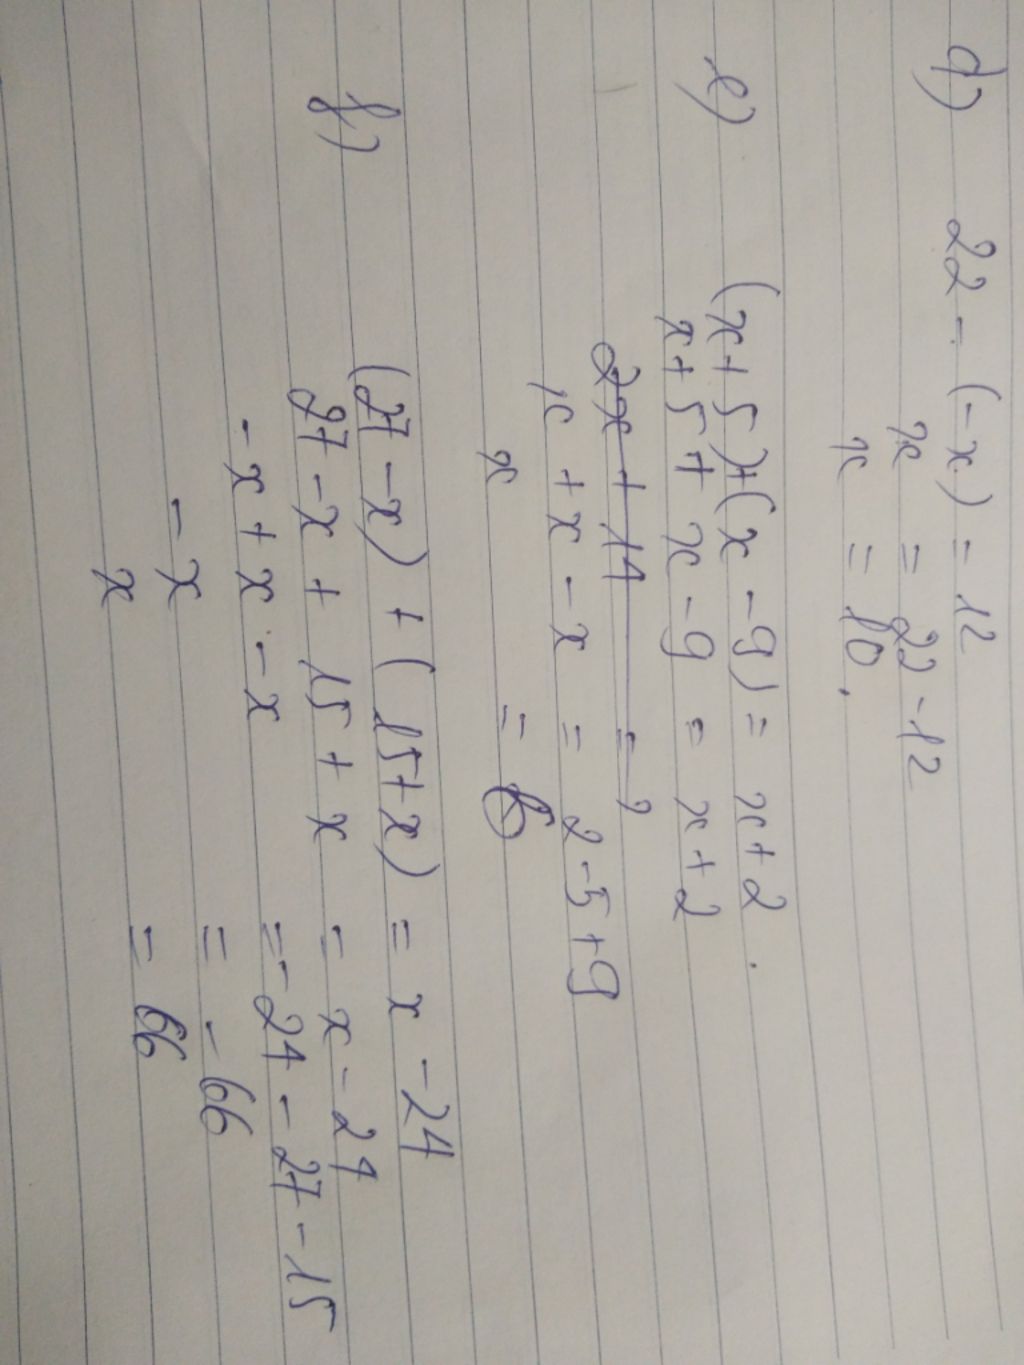 d) 22 - (-x) = 12
x = 22 - 12
x = 10.
e) (x + 5) + (x - 9) = x + 2.
x + 5 + x - 9 = x + 2
2x + 14 = 2
x + x - x = 2 - 5 + 9
x = 6
f) (27 - x) + (15 + x) = x - 24
27 - x + 15 + x = x - 24
- x + x - x = - 24 - 27 - 15
- x = - 66
x = 66